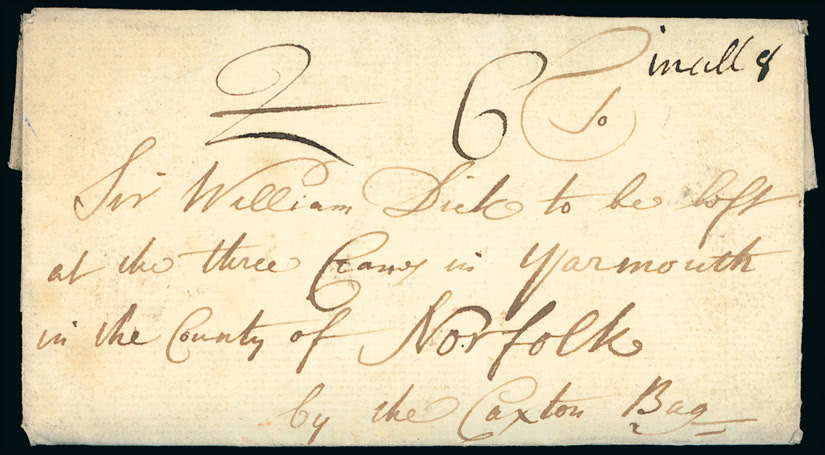 2 6 To in all 8
Sir William Dick to be left
at the three Cranes in Yarmouth
in the County of Norfolk
by the Caxton Bag